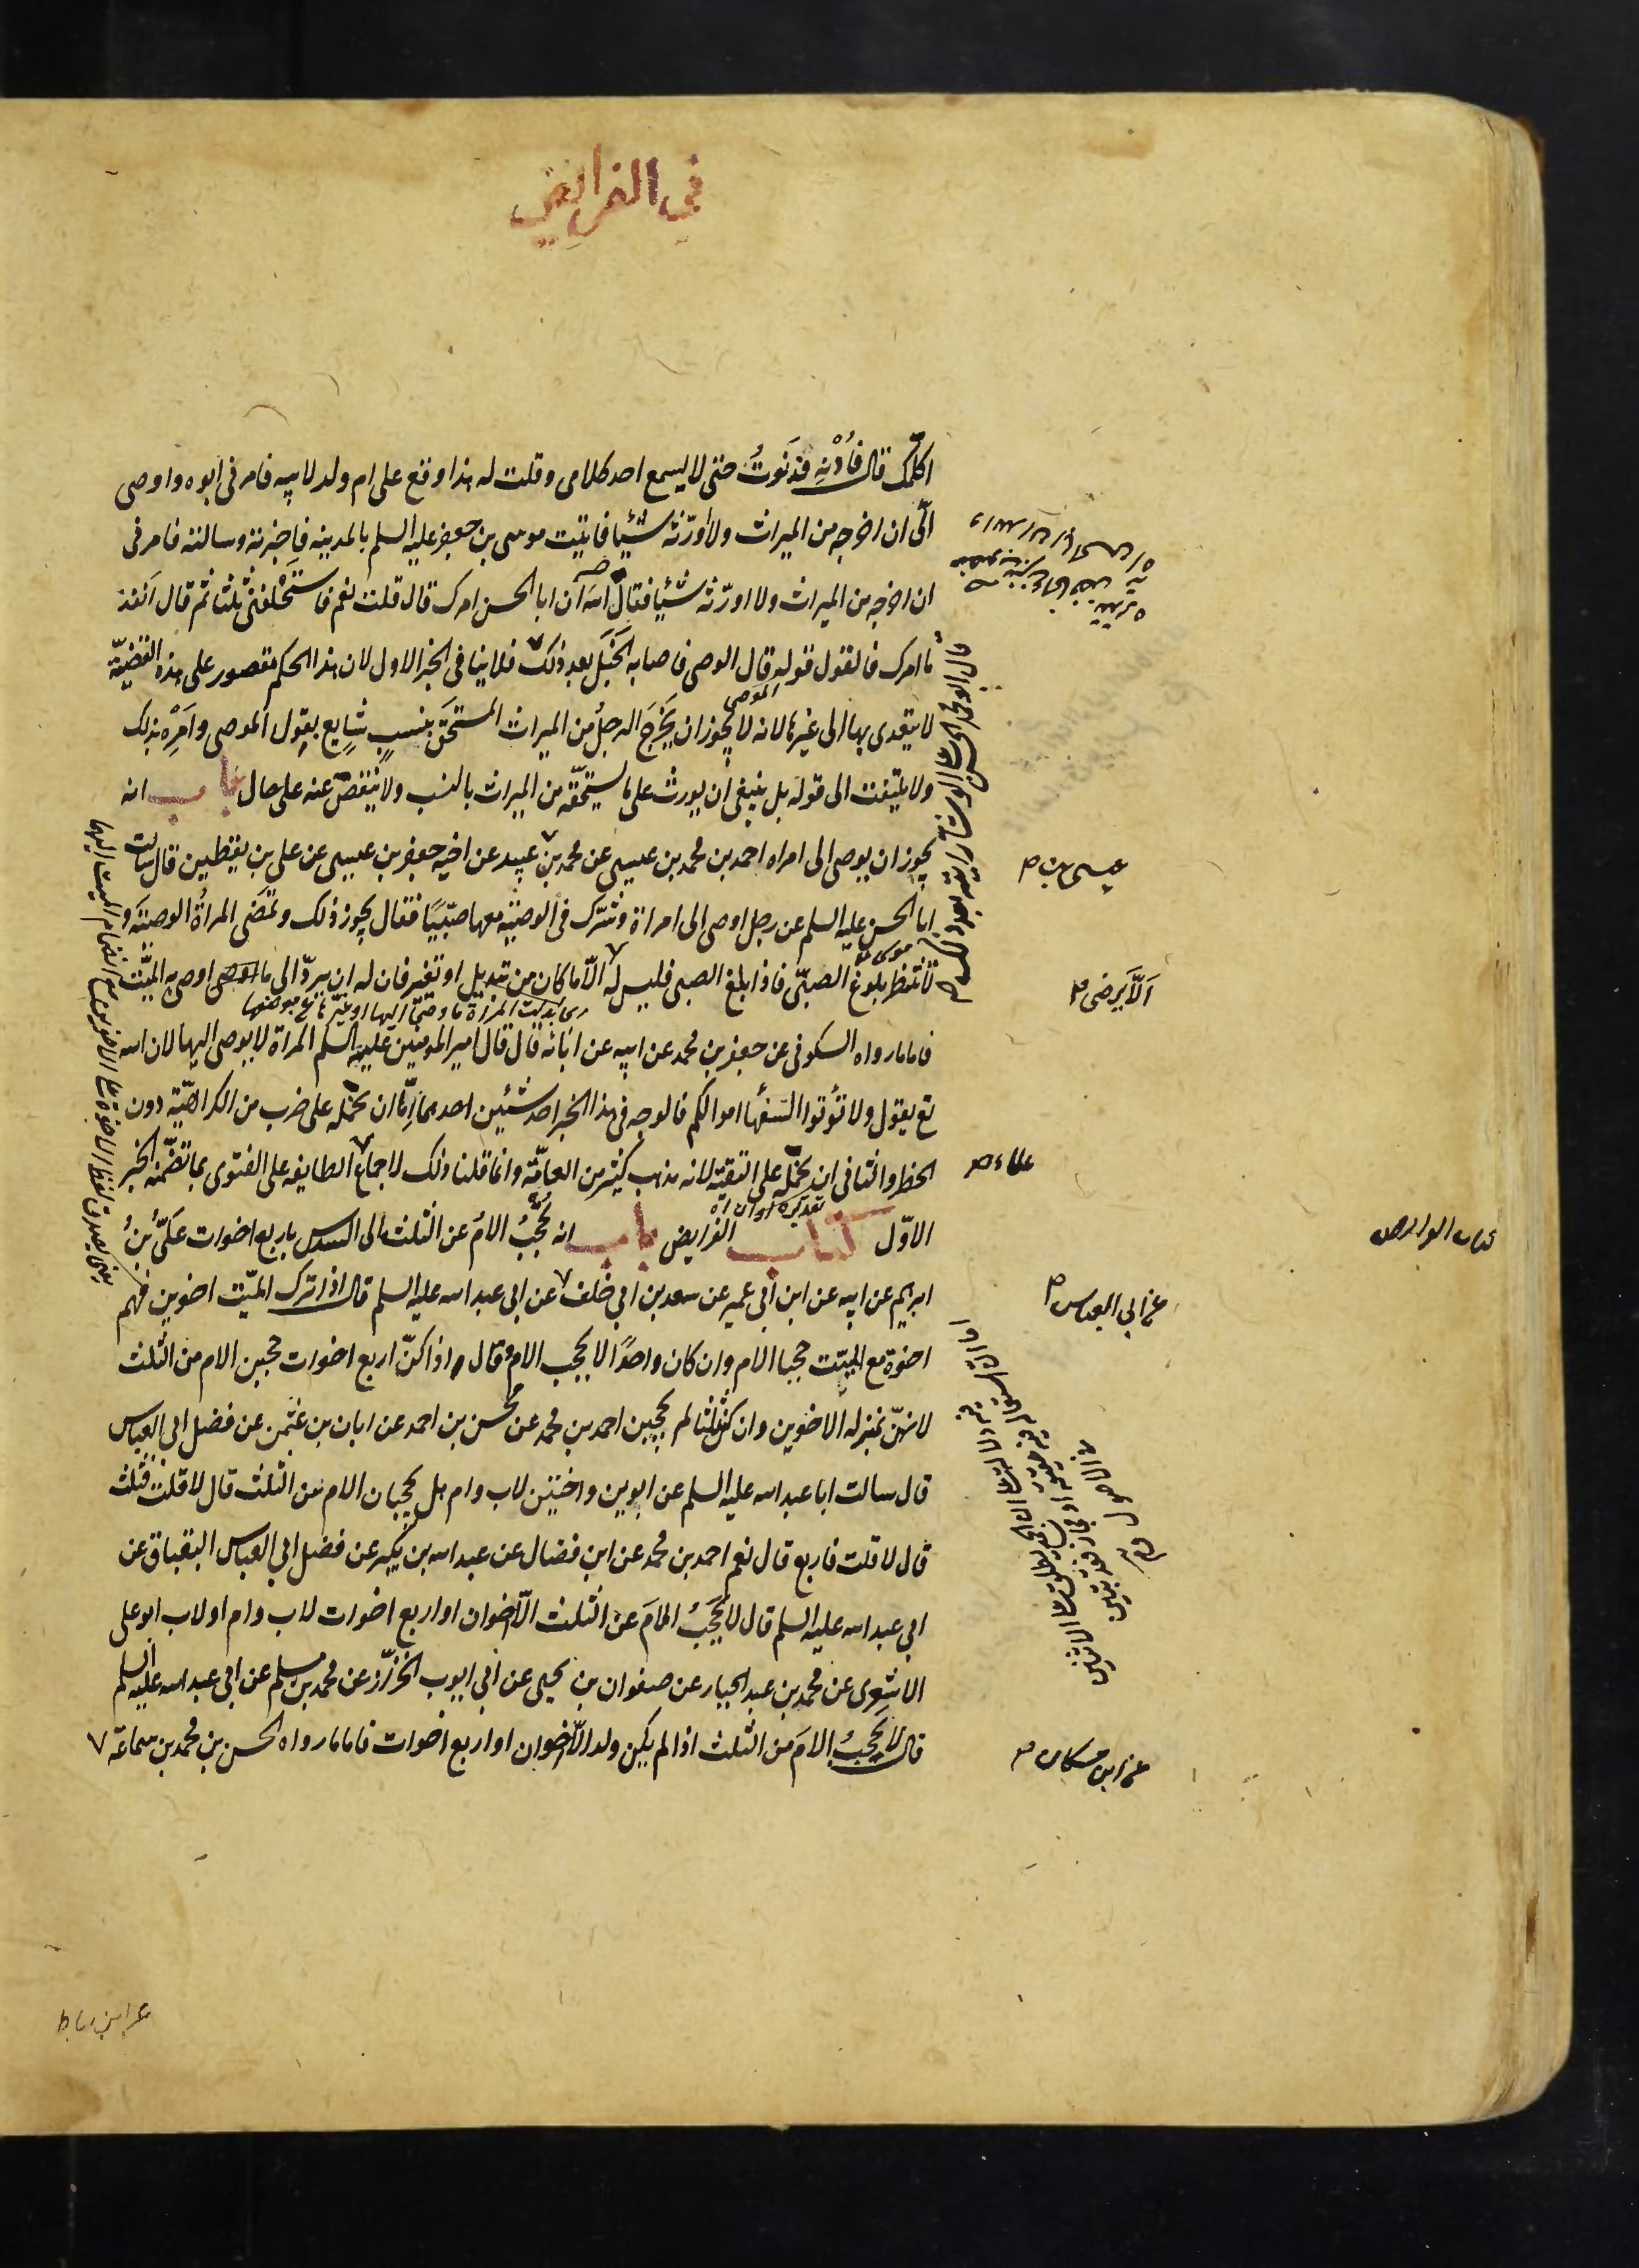 في الفرايض
اكلمك قال فَأُدْنِهِ فدنوتُ حتى لا يسمع احد كلامى وقلت له هذا وقع على ام ولد لابيه فامرنى ابوه واوصى
الىّ ان اخرجه من الميراث ولا أورّثه شيئا فاتيت موسى بن جعفر عليه السلم بالمدينه فاخبرته وسالته فامرنى
ان اخرجه من الميراث ولا اورّثه شيئا فقال اللّه ان ابا الحسن امرك قال قلت نعم فاستحلفنى ثلثا ثم قال انفذ
ما امرك فالقول قوله قال الوصى فاصابه الخَبَل بعد ذلك فلا ينا فى الخبر الاول لان هذا الحكم مقصور على هذه القضيّة
الموصى
لا يتعدى بها الى غيرها لانه لا يجوز ان يَخرُجَ الرجلُ من الميراث المستحَق بنسبٍ شايع بقول الموصى وامره بذلك
ولا يلتفت الى قوله بل ينبغى ان يورث على ما يستحقّه من الميراث بالنسب ولا ينقص عنه على حال باب انه
يجوز ان يوصى الى امراه احمد بن محمد بن عيسى عن محمد بن عيسى عن اخيه جعفر بن عيسى عن على بن يقطين قال سالت
ابا الحسن عليه السلم عن رجل اوصى الى امراة وشرّك فى الوصيّه معها صبيّا فقال يجوز ذلك وتمضى المراةُ الوصيّة و
لا تنتظر بلوغ الصبىّ فاذا بلغ الصبى فليس له الّا ما كان من تبديل او تغيير فان له ان يردّ الى ما اوصى به الميّت
فاما ما رواه السكونى عن جعفر بن محمد عن ابيه عن ابائه قال قال امير المومنين عليه السلم المراة لا يوصى اليها لان الله
تع يقول ولا تؤتوا السفها اموالكم فالوجه فى هذا الخبر احد شيئين احدهما ان نحمله على ضرب من الكراهيّة دون
الحظر والثانى ان نحمله على التقيّة لانه مذهب كثير من العامّة وانما قلنا ذلك لاجماع الطايفه على الفتوى بما تضمّنه الخبر
الاوّل كتاب الفرايض باب انه تُحجَبُ الامُ عن الثلث الى السدس باربع اخوات عَلىّ بنُ
ابرهيم عن ابيه عن ابن أبى عمير عن سعد بن ابي خلف عن ابى عبد الله عليه السلم قال اذا ترك الميّت اخوين فهم
اخوة مع الميّت حجبا الام وان كان واحدًا لا يحجب الام وقال اذا كنّ اربع اخوات حجبن الام من الثلث
لانهنّ بمنزلة الاخوين وان كنّ ثلثا لم يحجبن احمد بن محمد عن محسن بن احمد عن ابان بن عثمن عن فضل ابى العباس
قال سالت ابا عبد الله عليه السلم عن ابوين واختين لاب وام هل يحجبان الام من الثلث قال لا قلت فثلث
قال لا قلت فاربع قال نعم احمد بن محمد عن ابن فضال عن عبد الله بن بكير عن فضل ابي العباس البقباق عن
ابي عبد الله عليه السلم قال لا يَحجبُ الامَ عن الثلث الّا اخوان او اربع اخوات لاب وام او لاب ابو على
الاشعرى عن محمد بن عبد الجبار عن صفوان بن يحيى عن أبى ايوب الخزّاز عن محمد بن مسلم عن ابى عبد الله عليه السلم
قال لا يَحجبُ الامَ من الثلث اذا لم يكن ولد الّا اخوان او اربع اخوات فاما ما رواه الحسن بن محمد بن سماعة
قال ابو محمد الحسن على الوشا رايته بعد ذلك
عيسى بن
اَلّا يَرضى
علماء
كتاب الفرايض
عن ابي العباس
عن ابن مسكان
عن ابن رباط